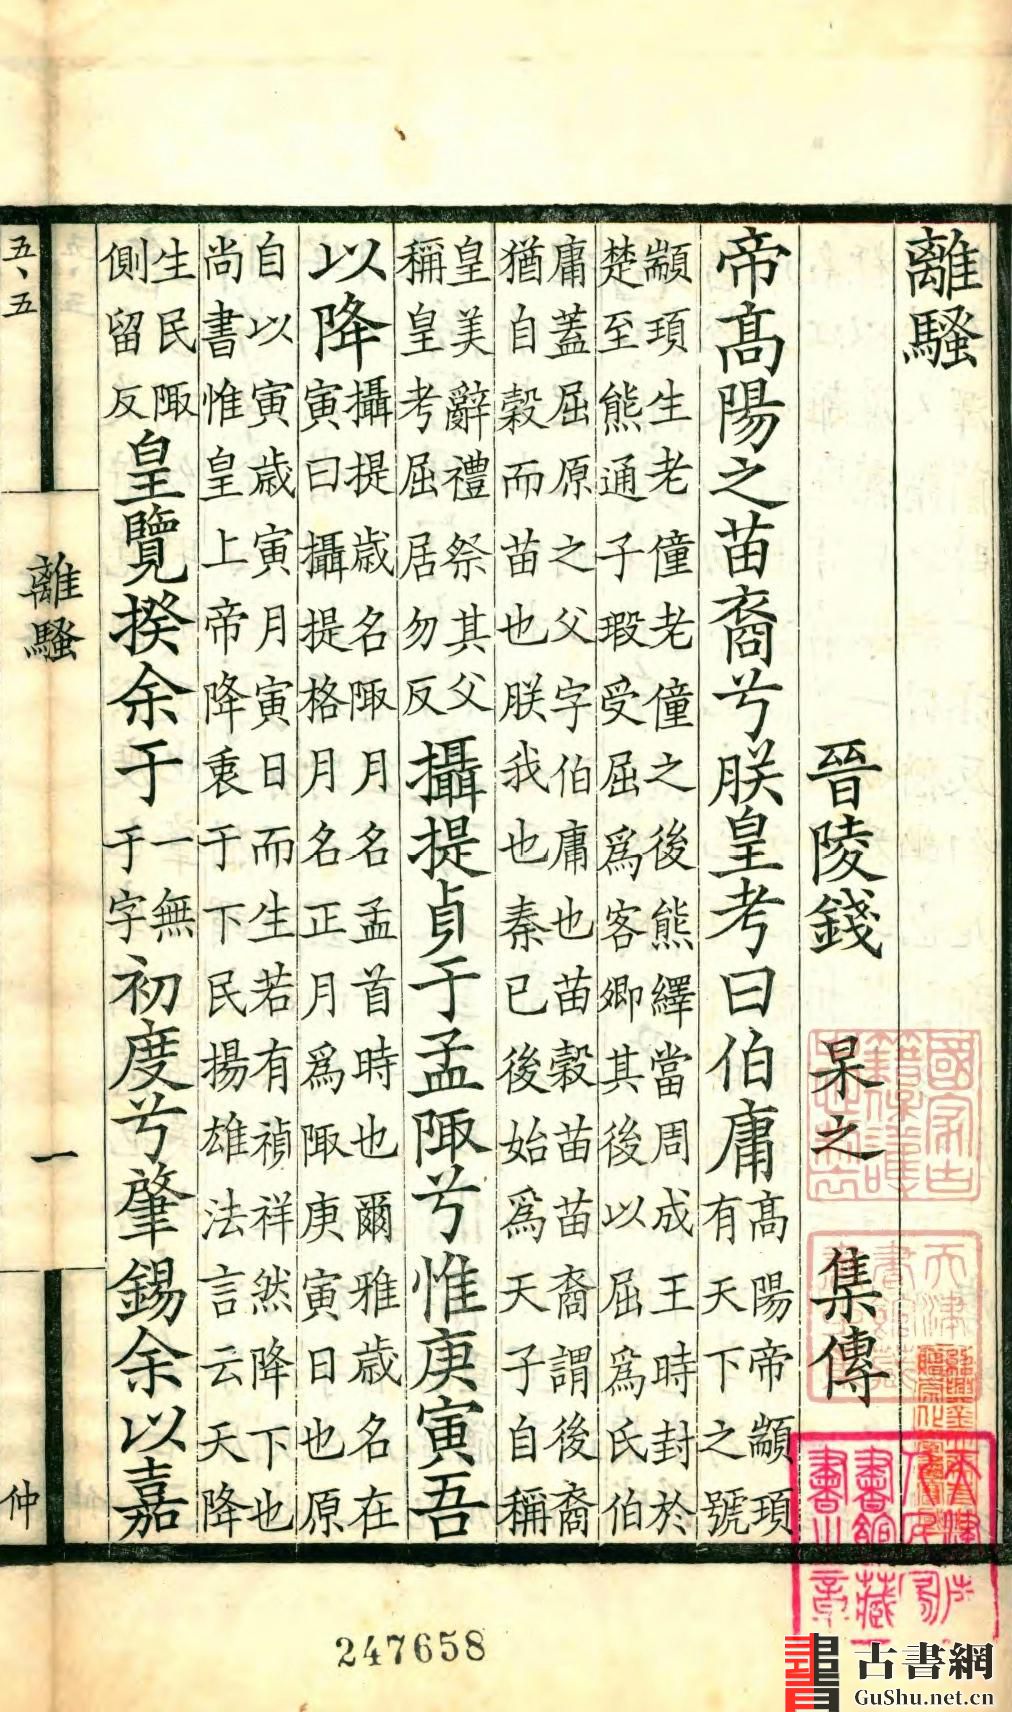 離騷
晉陵錢 杲之 集傳
帝髙陽之苗裔兮朕皇考曰伯庸髙陽帝顓頊
有天下之號
顓頊生老僮老僮之後熊繹當周成王時封於
楚至熊通子瑕受屈爲客卿其後以屈爲氏伯
庸蓋屈原之父字伯庸也苗穀苗苗裔謂後裔
猶自穀而苗也朕我也秦已後始爲天子自稱
皇美辭禮祭其父
稱皇考屈居勿反
攝提貞于孟陬兮惟庚寅吾
以降
攝提歲名陬月名孟首時也爾雅歲名在
寅曰攝提格月名正月爲陬庚寅日也原
自以寅歲寅月寅日而生若有禎祥然降下也
尚書惟皇上帝降衷于下民揚雄法言云天降
生民陬
側留反
皇覽揆余于
一無
于字
初度兮肇錫余以嘉
五、五
離騷
一
仲
247658
古書網
GuShu.net.cn